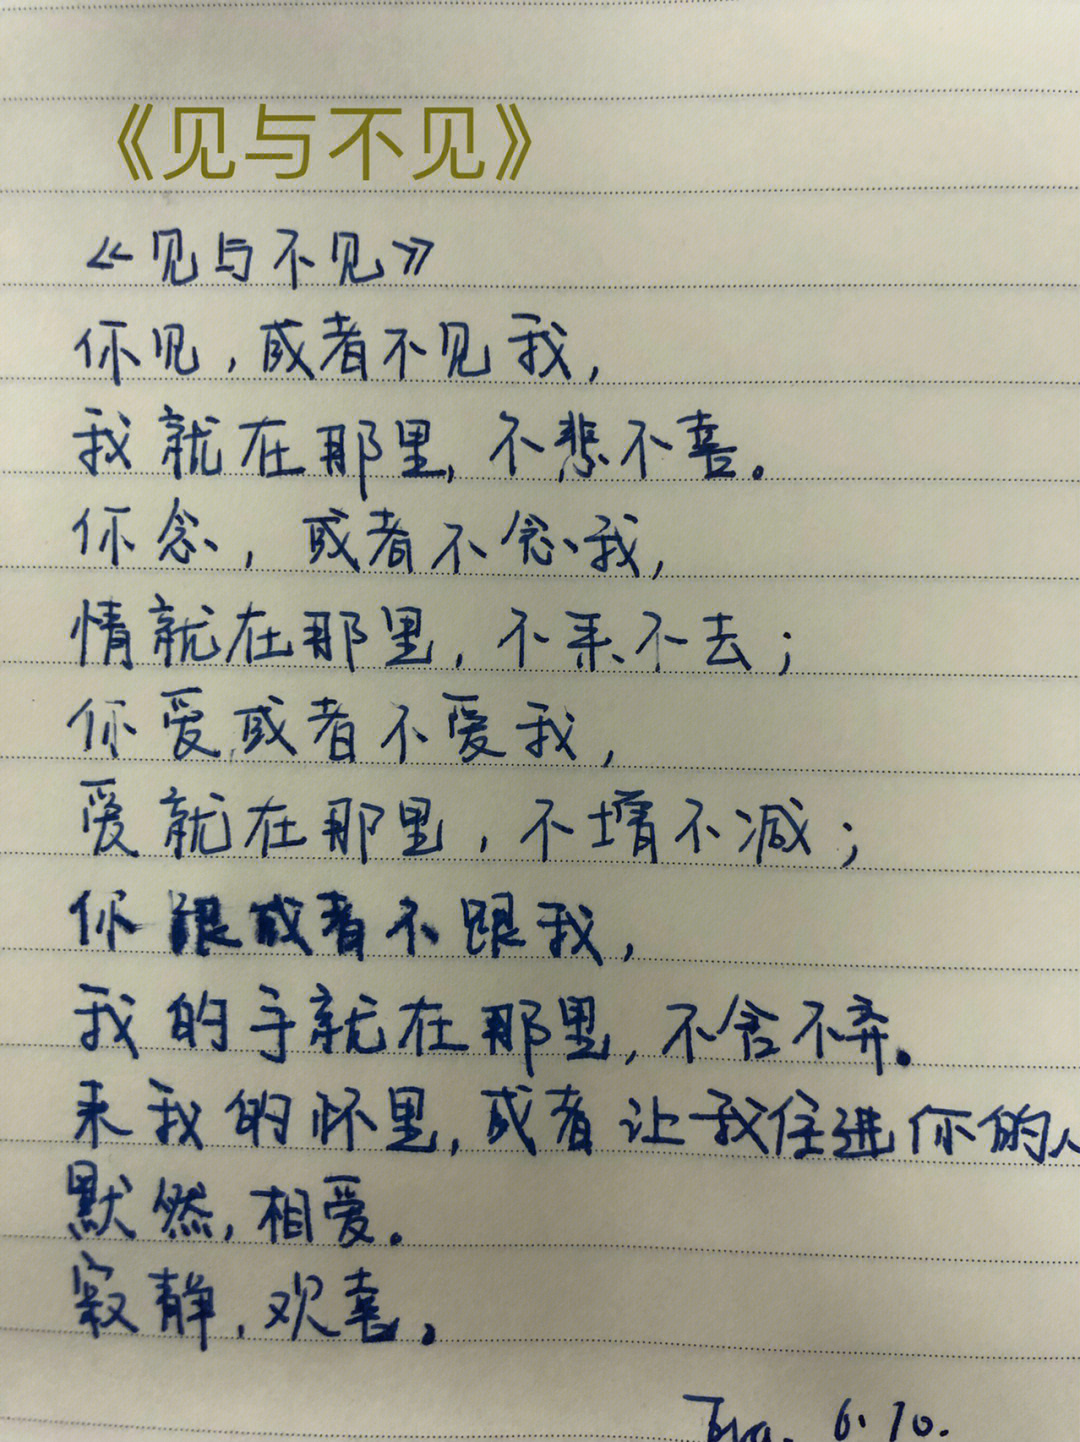 《见与不见》
《见与不见》
你见,或者不见我,
我就在那里,不悲不喜。
你念,或者不念我,
情就在那里,不来不去;
你爱或者不爱我,
爱就在那里,不增不减;
你跟或者不跟我,
我的手就在那里,不舍不弃。
来我的怀里,或者让我住进你的
默然,相爱。
寂静,欢喜。
6.10.